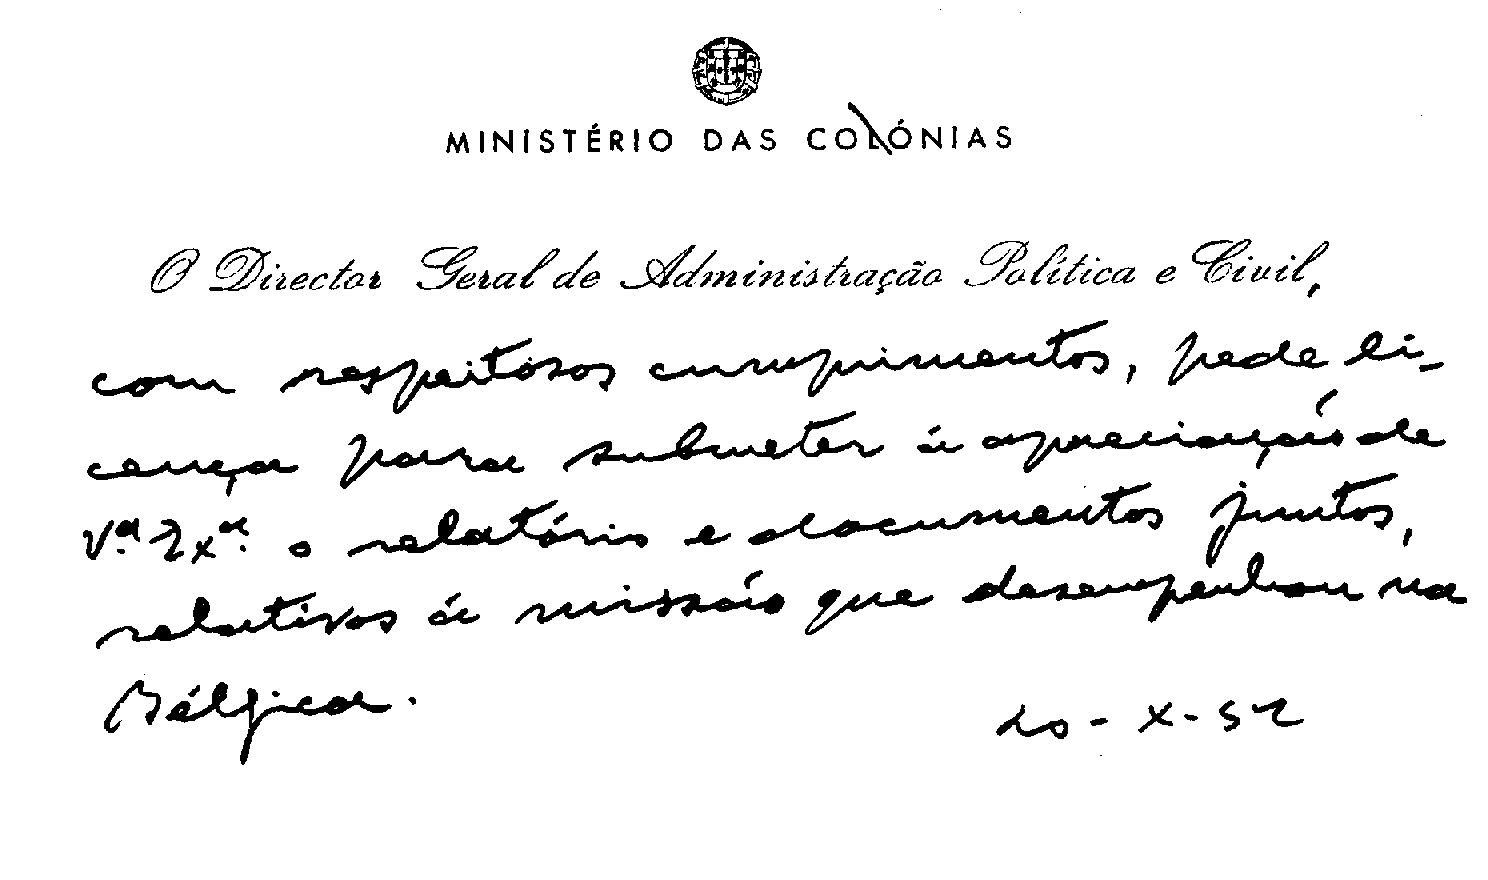 MINISTÉRIO DAS COLÓNIAS
O Director Geral de Administração Política e Civil,
com respeitosos cumprimentos, pede li-
cença para submeter à apreciação de
V.ª Ex.ª o relatório e documentos juntos,
relativos à missão que desempenhou na
Bélgica.
20-X-52